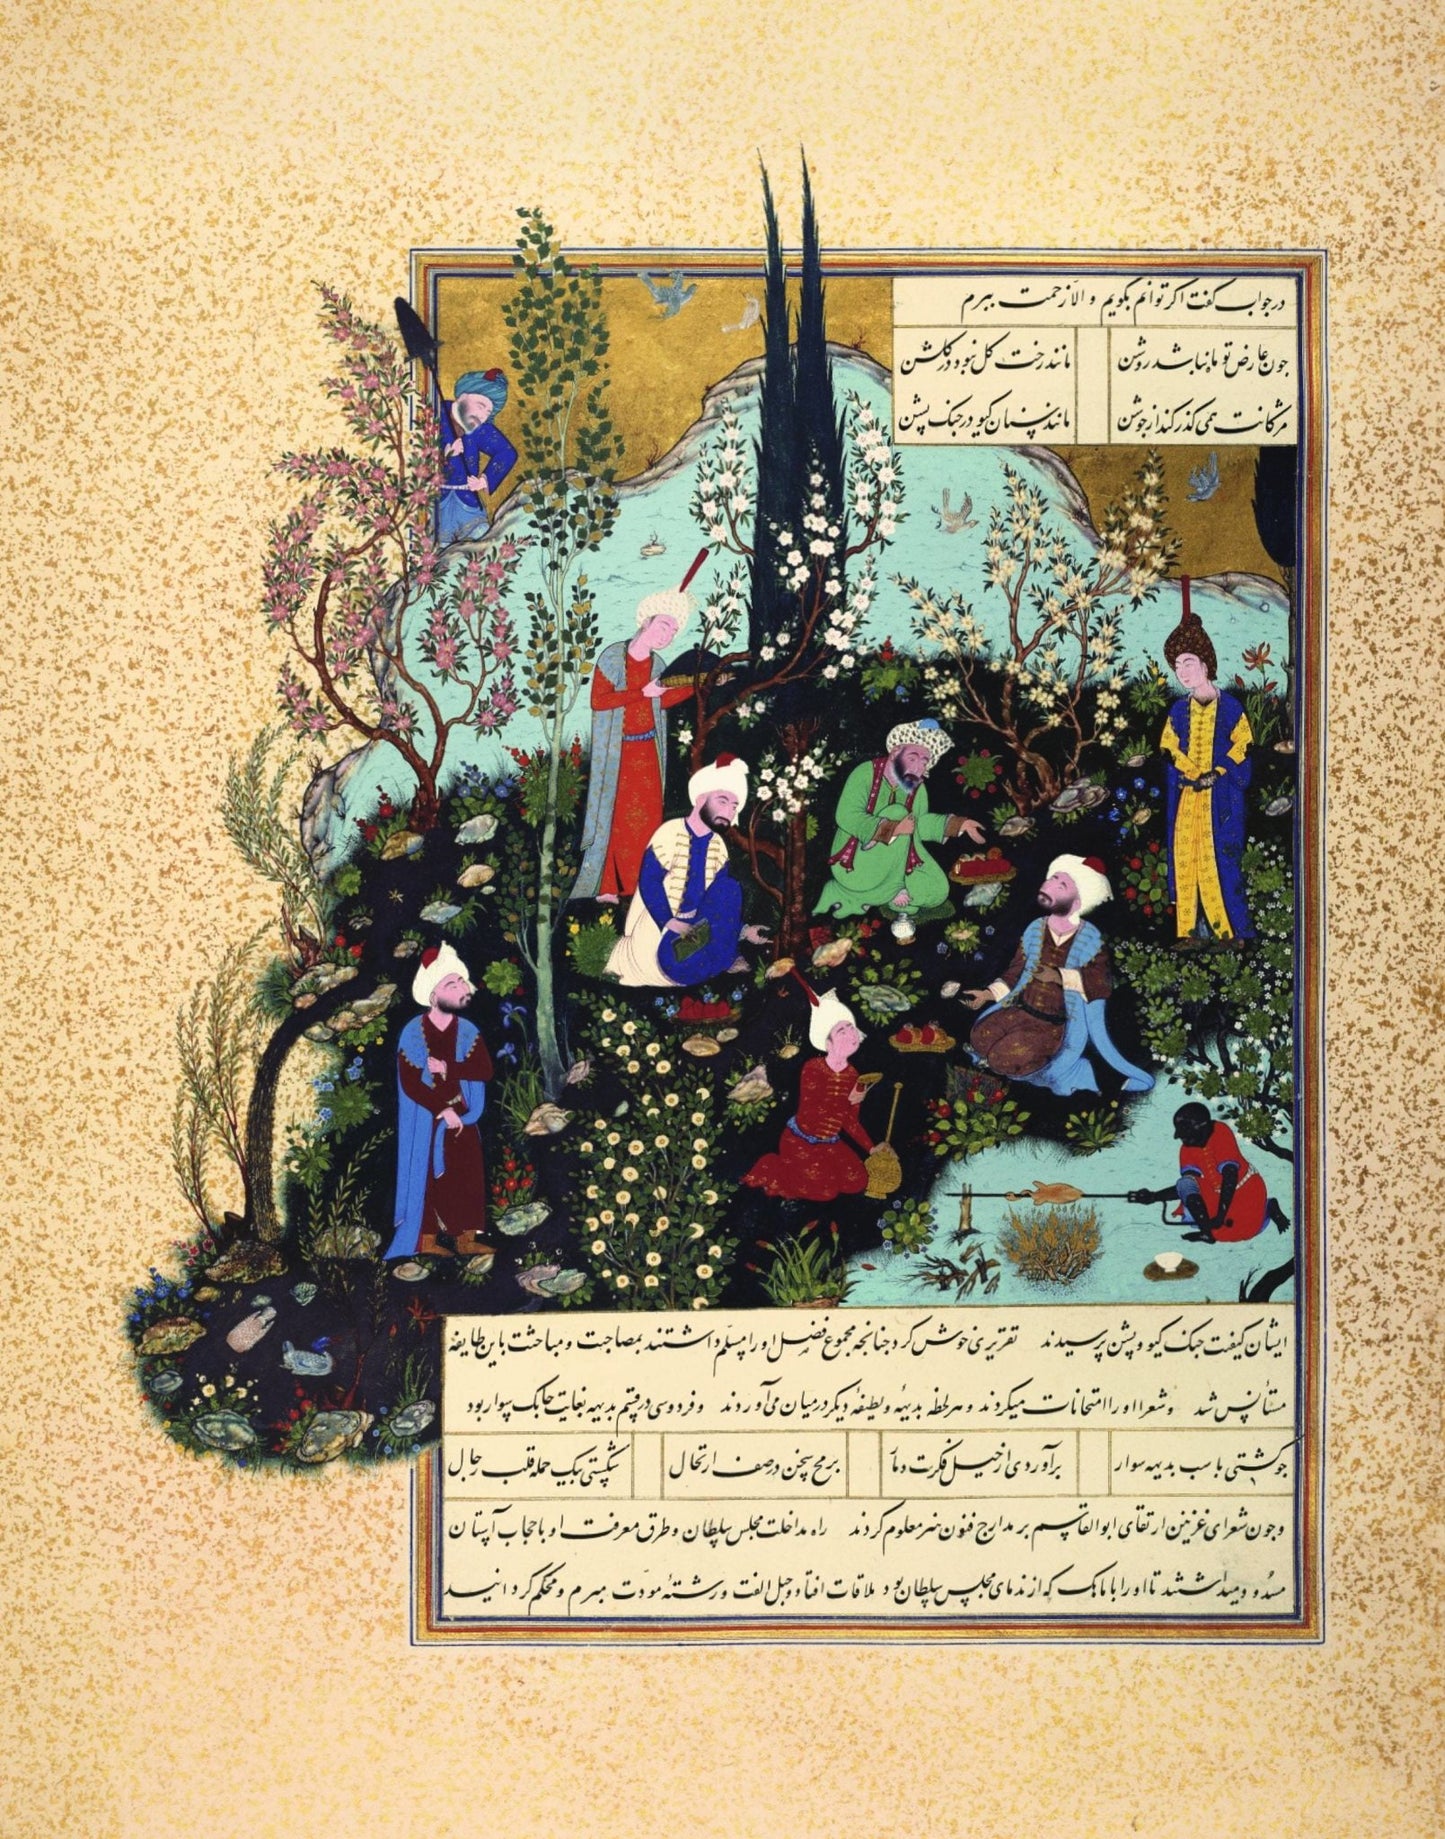 در جواب گفت اگر توانم بگویم و الّا زحمت ببرم
چون عارض تو ماه نباشد روشن مانند رخت گل نبود در گلشن
مژگانت همی گذر کند از جوشن مانند سنان کیو در جنک پشن
ایشان کیفت جنک کیو و پشن پرسیدند تقریری خوش کرد چنانجه مجموع فضل او را مسلّم داشتند بمصاحبت و مباحثت باین طایفه
مستأنس شد و شعرا او را امتحانات میکردند و هر لحظه بدیهه و لطیفهٔ دیکر در میان می آوردند و فردوسی در قسم بدیهه بغایت چابک سوار بود
چو کشتی با سب بدیهه سوار برآوردی از خیل فکرت دمار برمح سخن در صف ارتجال شکستی بیک حمله قلب رجال
و چون شعرای غزنین ارتقای ابوالقاسم بر مدارج فنون هنر معلوم کردند راه مداخلت مجلس سلطان و طرق معرفت او با حجاب آستان
مسدود میداشتند تا او را با ماهک که از ندمای مجلس سلطان بود ملاقات افتاد و حبل الفت و رشتهٔ مودّت مبرم و محکم کردانید